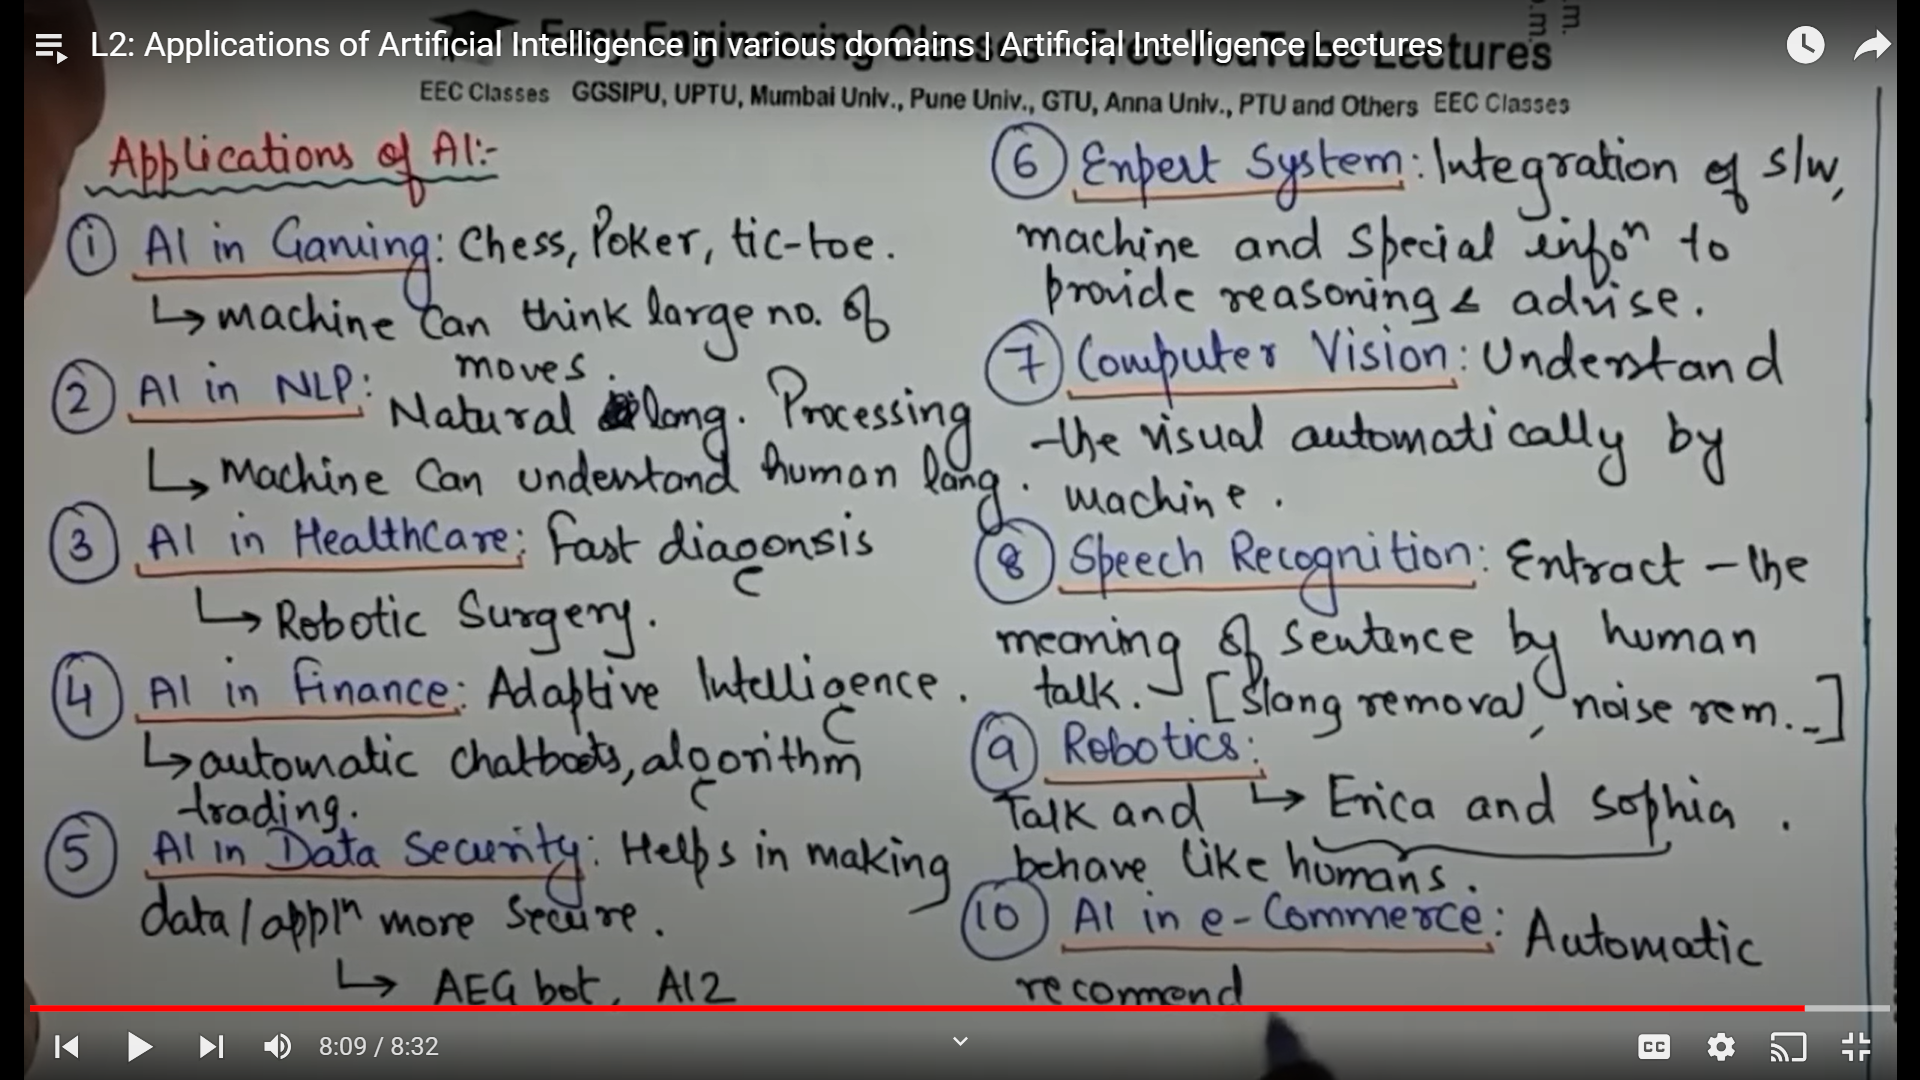 L2: Applications of Artificial Intelligence in various domains | Artificial Intelligence Lectures
EEC Classes GGSIPU, UPTU, Mumbai Univ., Pune Univ., GTU, Anna Univ., PTU and Others EEC Classes
Applications of AI:-
1 AI in Gaming: Chess, Poker, tic-toe.
↳ machine can think large no. of
moves.
2 AI in NLP: Natural lang. Processing
↳ Machine Can understand human lang.
3 AI in HealthCare: Fast diagonsis
↳ Robotic Surgery.
4 AI in Finance: Adaptive Intelligence.
↳ automatic chatboots, algorithm
trading.
5 AI in Data Security: Helps in making
data/appln more secure.
↳ AEG bot, AI2
6 Expert System: Integration of s/w,
machine and special infon to
provide reasoning & advise.
7 Computer Vision: Understand
the visual automatically by
machine.
8 Speech Recognition: Extract the
meaning of sentence by human
talk. [Slang removal, noise rem...]
9 Robotics:
↳ Erica and Sophia.
Talk and
behave like humans.
10 AI in e-Commerce: Automatic
recommend
8:09 / 8:32
CC